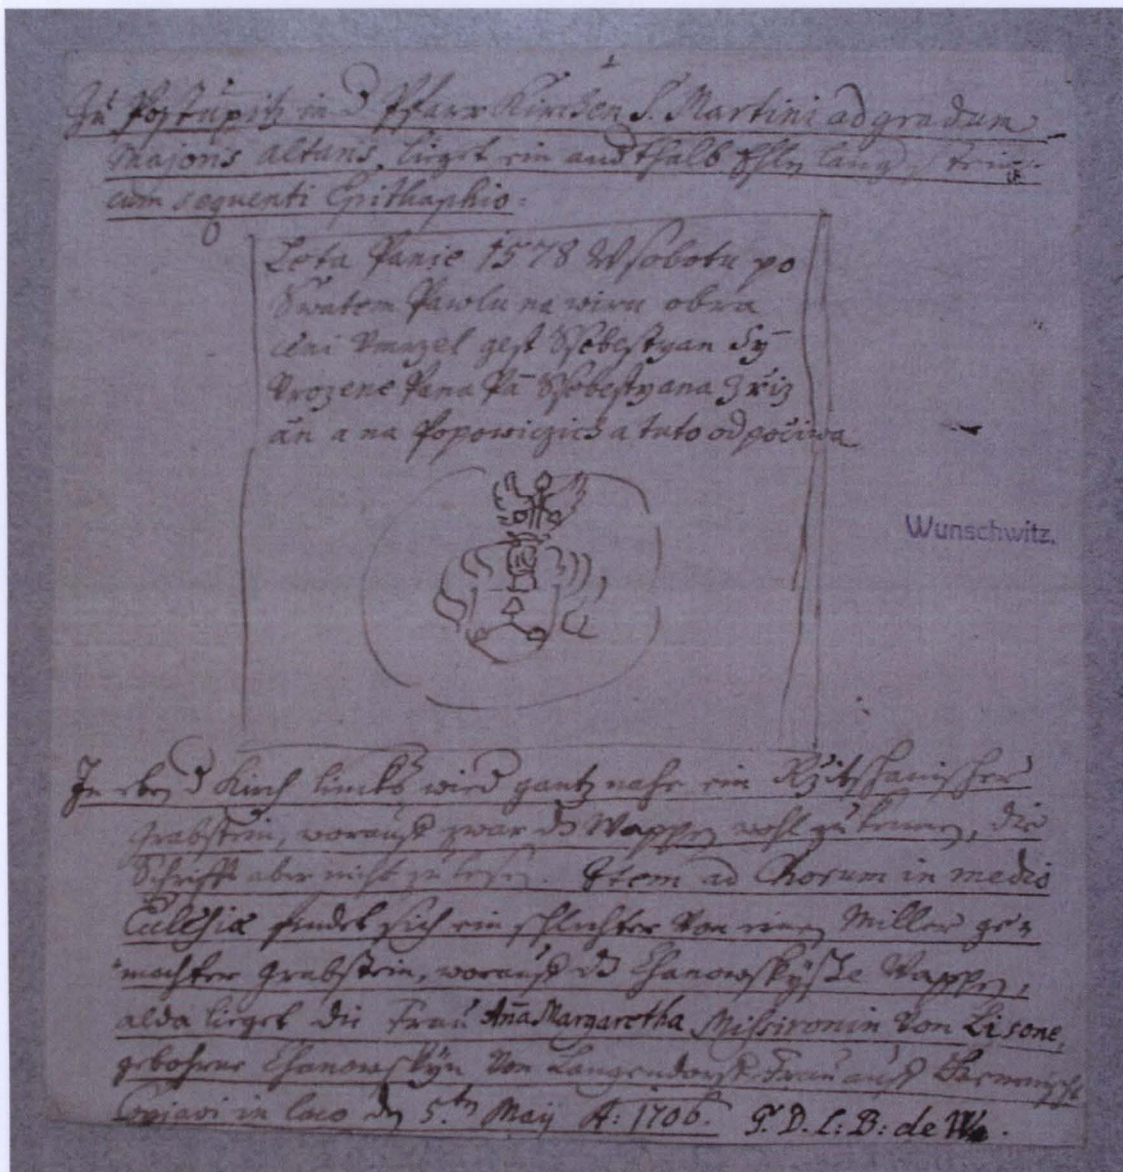 Zu Postupitz in d Pfarr Kirchen S. Martini ad gradum
Majoris altaris, lieget ein and thalb Ehln lang
cum sequenti Epithaphio:
Leta Panie 1578 W sobotu po
Swatem Pawlu na wiru obra
ceni Vmrzel gest Ssebestyan Sÿ
Vrozene Pana Pa Ssebestyana Z řiz
an a na Popowiczich a tuto odpočiwa
Wunschwitz.
In eben d Kirch lincks wird gantz nahe ein Rzitschanischer
Grabstein, worauff zwar ds Wappen wohl zu kennen, die
Schrifft aber nicht zu lesen. Item ad Chorum in medio
Eclesiæ findet sich ein schlechter von einen Miller ge=
machter Grabstein, worauff ds Chanowskÿsche Wappen,
alda lieget die Frau Aña Margaretha Missironin Von Lisone,
gebohrne Chanowskÿn Von Langendorff Frau auff
Copiavi in loco den 5.ten Maij A: 1706. G. D. L: B: de W.